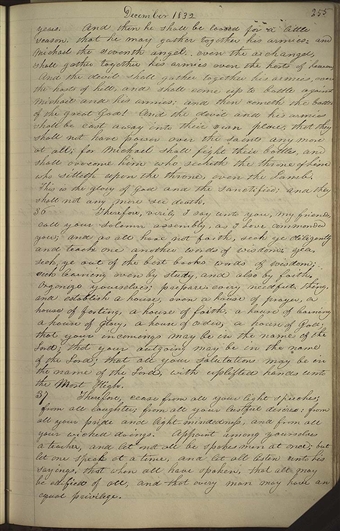 December 1832. 255
years. And then he shall be loosed for a little
season, that he may gather together his armies, and
Michael the seventh angel, even the archangel,
shall gather together his armies even the hosts of heaven.
And the devil shall gather together his armies, even
the hosts of hell, and shall come up to battle against
Michael and his armies; and then cometh the battle
of the great God! And the devil and his armies
shall be cast away into their own place, that they
shall not have power over the saints any more
at all; for Michael shall fight their battles, and
shall overcome him who seeketh the throne of him
who sitteth upon the throne, even the Lamb.
This is the glory of God and the sanctified; and they
shall not any more see death.
36 Therefore, verily I say unto you, my friends,
call your solemn assembly, as I have commanded
you; and as all have not faith, seek ye diligently
and teach one another words of wisdom; yea,
seek ye out of the best books words of wisdom;
seek learning even by study, and also by faith.
Organize yourselves; prepare every needful thing,
and establish a house, even a house of prayer, a
house of fasting, a house of faith, a house of learning
a house of glory, a house of order, a house of God;
that your incomings may be in the name of the
Lord; that your outgoings may be in the name
of the Lord; that all your salutations may be in
the name of the Lord, with uplifted hands unto
the Most High.
37 Therefore, cease from all your light speeches;
from all laughter; from all your lustful desires; from
all your pride and light mindedness, and from all
your wicked doings. Appoint among yourselves
a teacher, and let not all be spokesmen at once; but
let one speak at a time, and let all listen unto his
sayings, that when all have spoken, that all may
be edified of all, and that every man may have an
equal privilege.